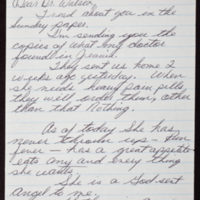 Dear Dr. Watson
I read about you in the
Sunday paper.
I'm sending you the
copies of what my doctor
found in Jeannie.
They sent us home 2
weeks ago yesterday. When
she needs heavy pain pills
they will order them, other
than that nothing.
As of today she has
never thrown up -
fever - has a great appetite
eats any and every thing
she wants
She is a God sent
Angel to me.